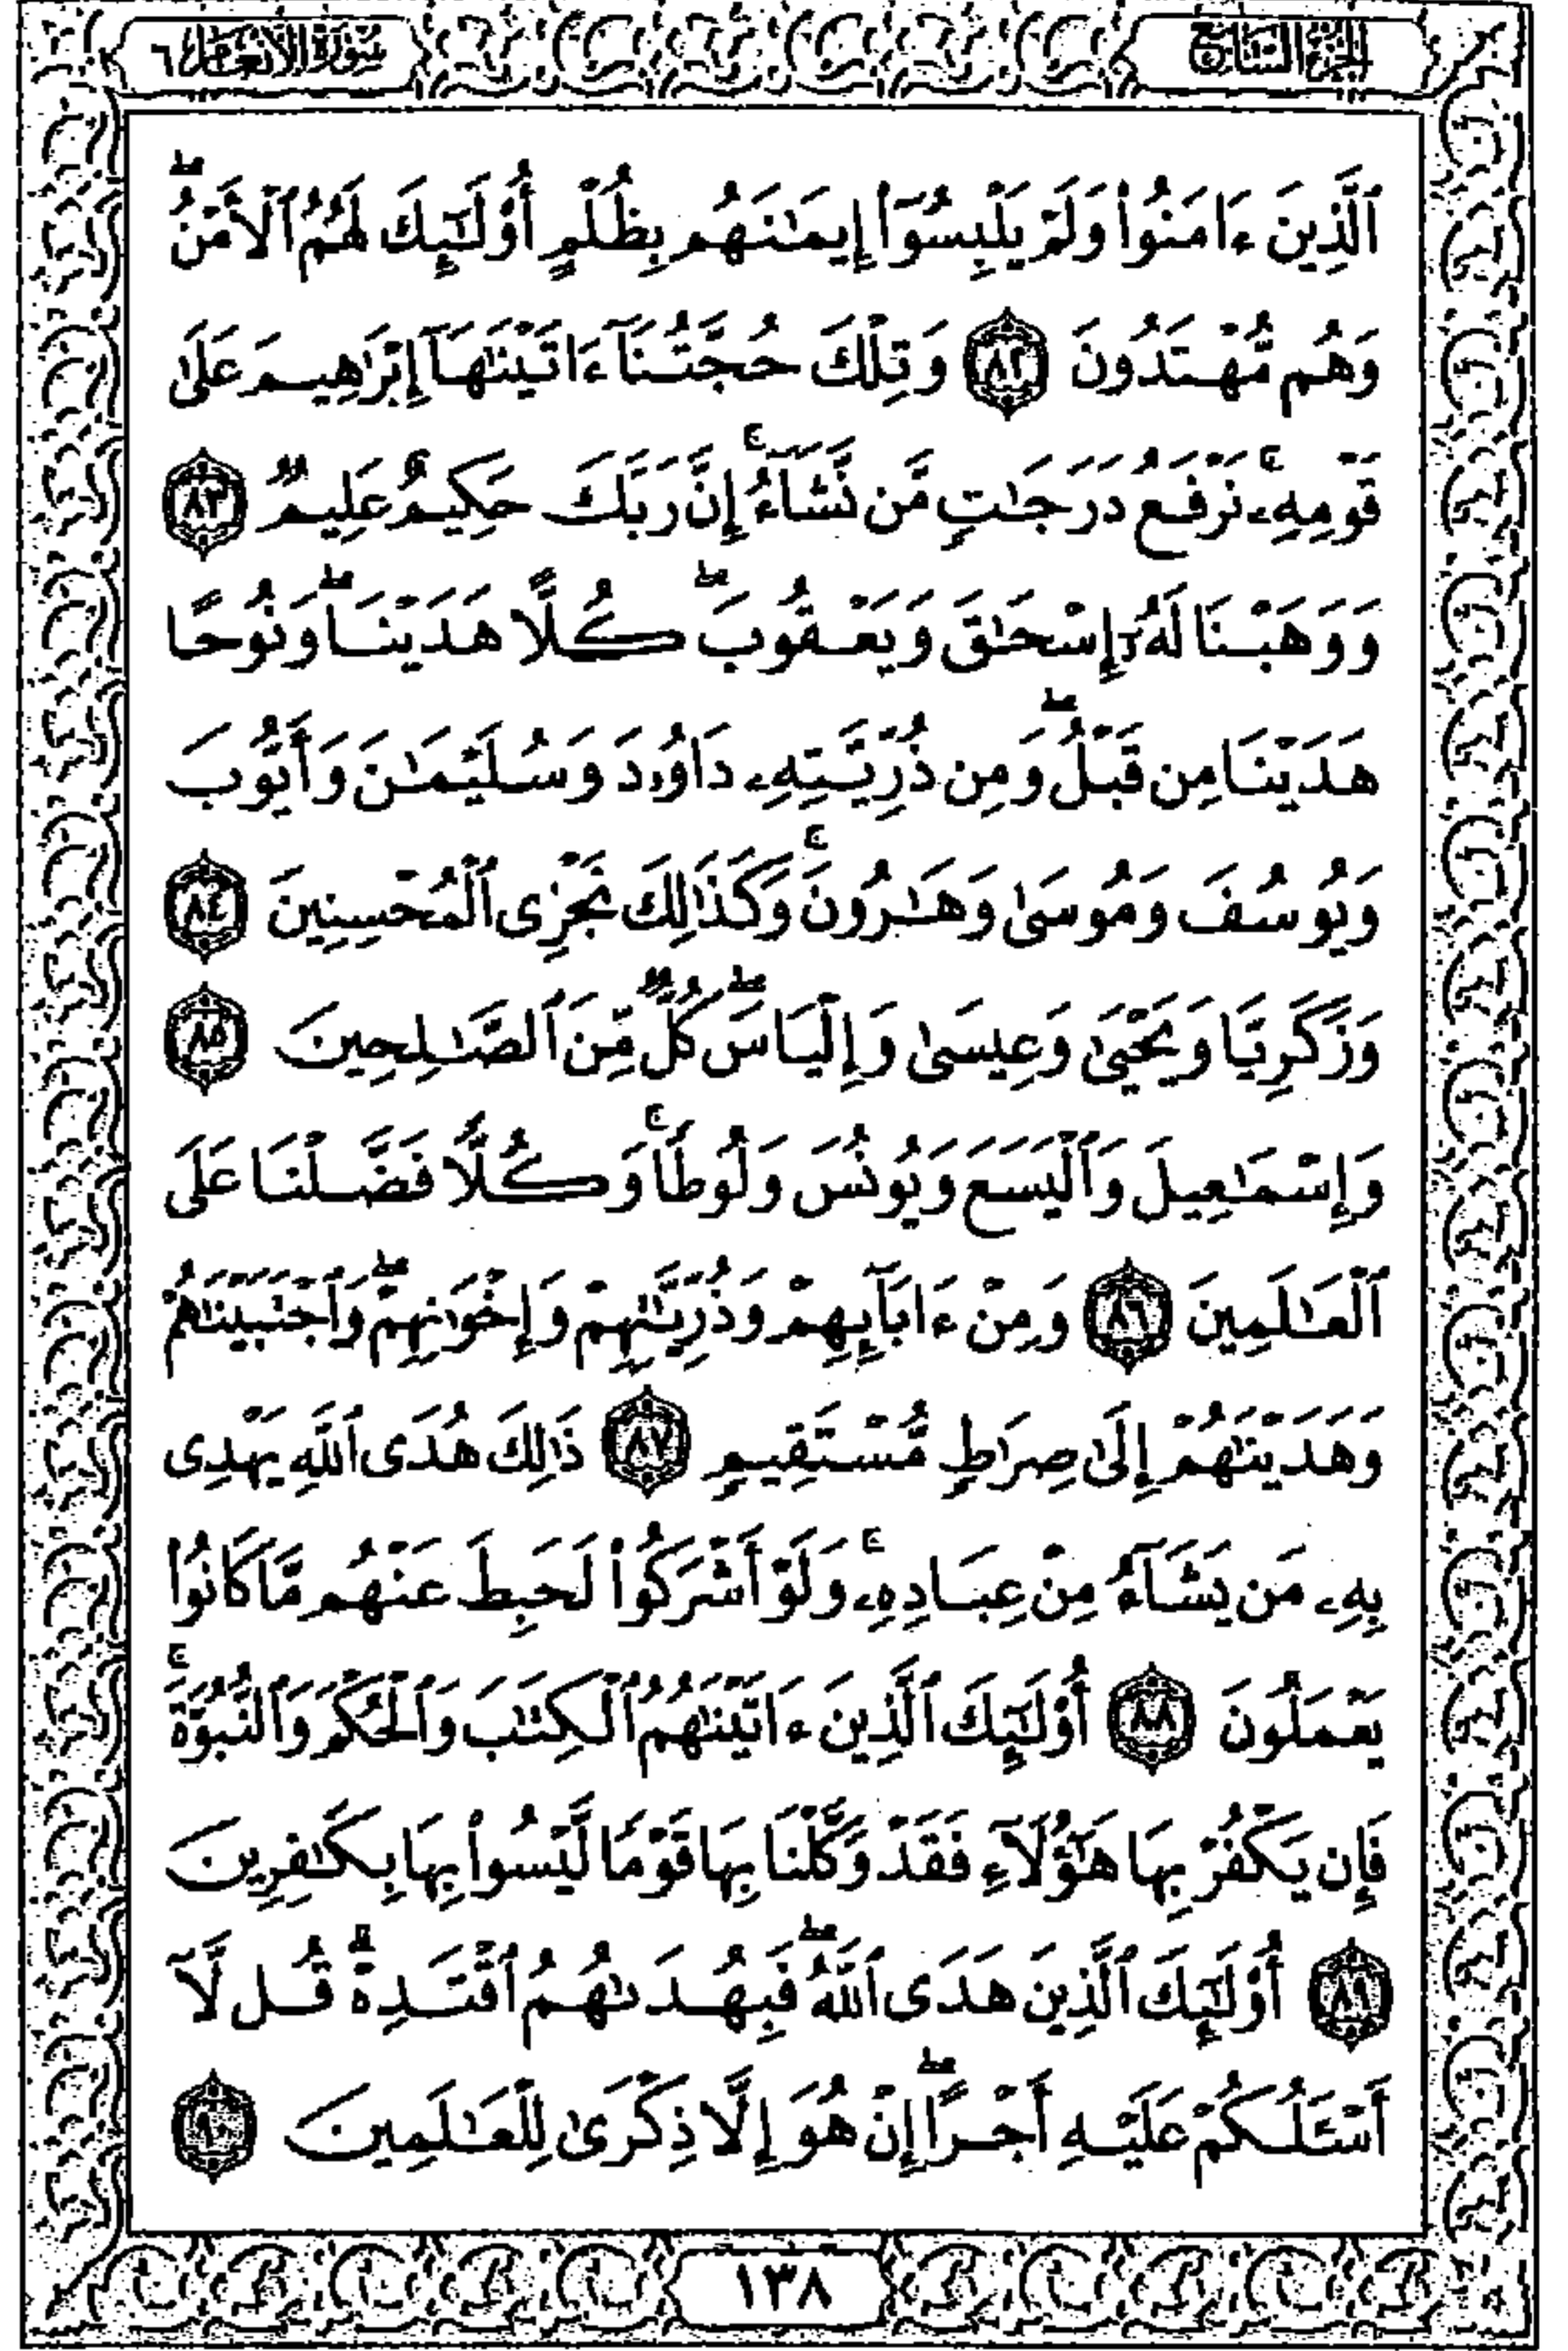 الجزء السابع
سورة الأنعام ٦
ٱلَّذِينَ ءَامَنُوا۟ وَلَمْ يَلْبِسُوٓا۟ إِيمَٰنَهُم بِظُلْمٍ أُو۟لَٰٓئِكَ لَهُمُ ٱلْأَمْنُ ۖ
وَهُم مُّهْتَدُونَ ٨٢ وَتِلْكَ حُجَّتُنَآ ءَاتَيْنَٰهَآ إِبْرَٰهِيمَ عَلَىٰ
قَوْمِهِۦ ۚ نَرْفَعُ دَرَجَٰتٍ مَّن نَّشَآءُ ۗ إِنَّ رَبَّكَ حَكِيمٌ عَلِيمٌ ٨٣
وَوَهَبْنَا لَهُۥٓ إِسْحَٰقَ وَيَعْقُوبَ ۖ كُلًّا هَدَيْنَا ۖ وَنُوحًا
هَدَيْنَا مِن قَبْلُ ۖ وَمِن ذُرِّيَّتِهِۦ دَاوُۥدَ وَسُلَيْمَٰنَ وَأَيُّوبَ
وَيُوسُفَ وَمُوسَىٰ وَهَٰرُونَ ۚ وَكَذَٰلِكَ نَجْزِى ٱلْمُحْسِنِينَ ٨٤
وَزَكَرِيَّا وَيَحْيَىٰ وَعِيسَىٰ وَإِلْيَاسَ ۖ كُلٌّ مِّنَ ٱلصَّٰلِحِينَ ٨٥
وَإِسْمَٰعِيلَ وَٱلْيَسَعَ وَيُونُسَ وَلُوطًا ۚ وَكُلًّا فَضَّلْنَا عَلَى
ٱلْعَٰلَمِينَ ٨٦ وَمِنْ ءَابَآئِهِمْ وَذُرِّيَّٰتِهِمْ وَإِخْوَٰنِهِمْ ۖ وَٱجْتَبَيْنَٰهُمْ
وَهَدَيْنَٰهُمْ إِلَىٰ صِرَٰطٍ مُّسْتَقِيمٍ ٨٧ ذَٰلِكَ هُدَى ٱللَّهِ يَهْدِى
بِهِۦ مَن يَشَآءُ مِنْ عِبَادِهِۦ ۚ وَلَوْ أَشْرَكُوا۟ لَحَبِطَ عَنْهُم مَّا كَانُوا۟
يَعْمَلُونَ ٨٨ أُو۟لَٰٓئِكَ ٱلَّذِينَ ءَاتَيْنَٰهُمُ ٱلْكِتَٰبَ وَٱلْحُكْمَ وَٱلنُّبُوَّةَ ۚ
فَإِن يَكْفُرْ بِهَا هَٰٓؤُلَآءِ فَقَدْ وَكَّلْنَا بِهَا قَوْمًا لَّيْسُوا۟ بِهَا بِكَٰفِرِينَ
٨٩ أُو۟لَٰٓئِكَ ٱلَّذِينَ هَدَى ٱللَّهُ ۖ فَبِهُدَىٰهُمُ ٱقْتَدِهْ ۗ قُل لَّآ
أَسْـَٔلُكُمْ عَلَيْهِ أَجْرًا ۖ إِنْ هُوَ إِلَّا ذِكْرَىٰ لِلْعَٰلَمِينَ ٩٠
١٣٨